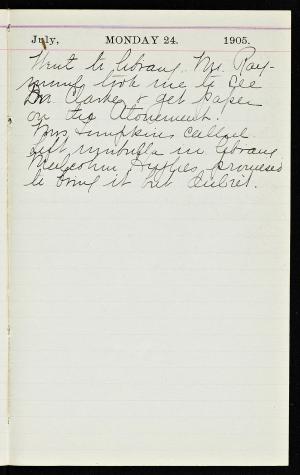 July, MONDAY 24. 1905.
Went to library. Mr. Ray-
mond took me to see
Dr. Clarke & get paper
on the Atonement.
Mrs Simpkins called.
Left umbrella in library
Malcolm Hughes promised
to bring it but didn't.